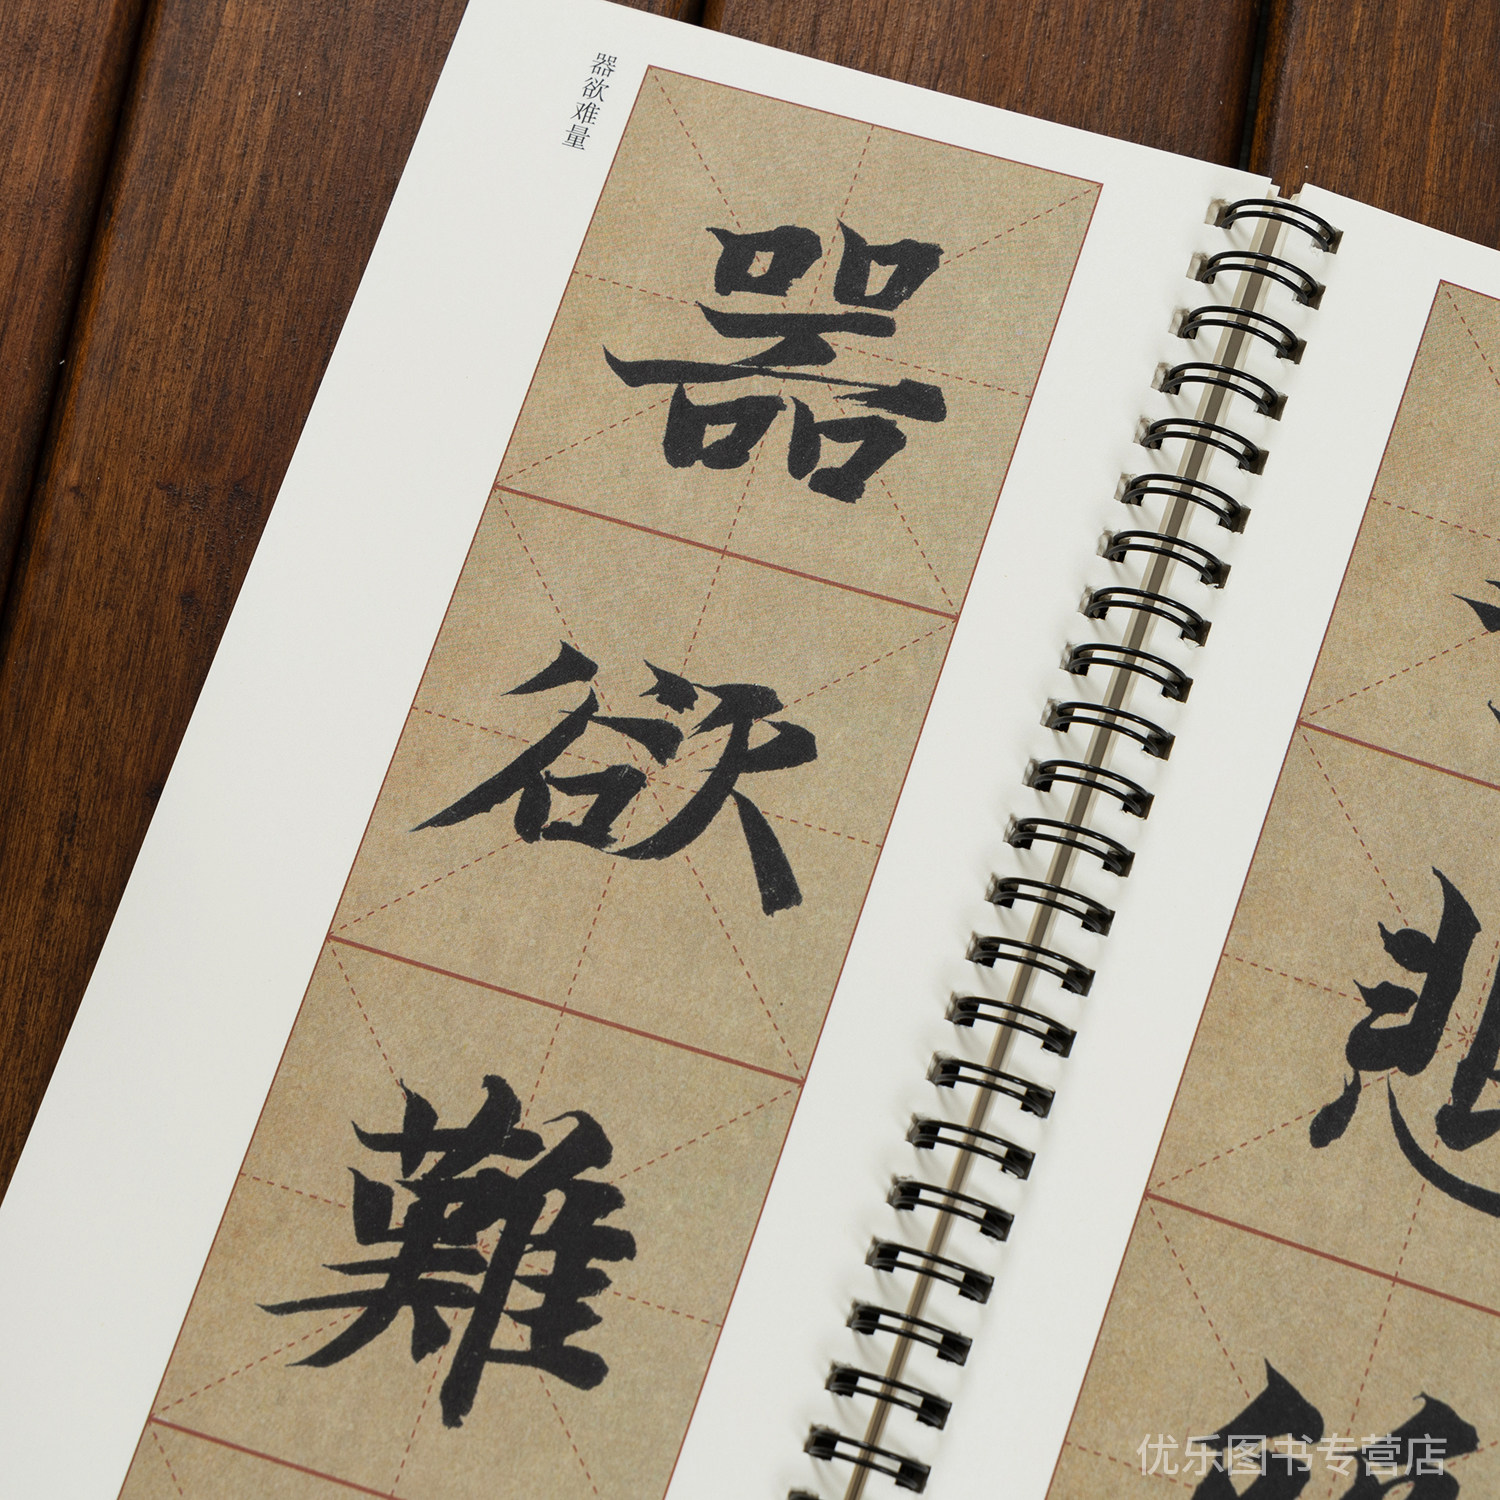 器欲难量
器
欲
難
悲
优乐图书专营店